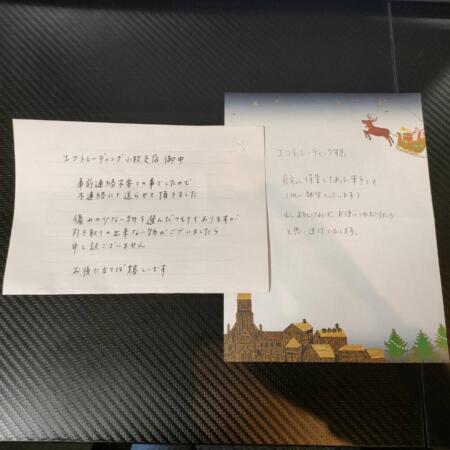 エコトレーディング小牧支店 御中
事前連絡不要との事でしたので
不連絡にて送らせて頂きました
傷みの少ない物を選んだつもりでおりますが
引き取りの出来ない物がございましたら
申し訳ございません
お役に立てば 嬉しいです
エコトレーディング様
自宅に保管してあった
もしよろしければ、お使いいただけたら
と思い送付いたします。